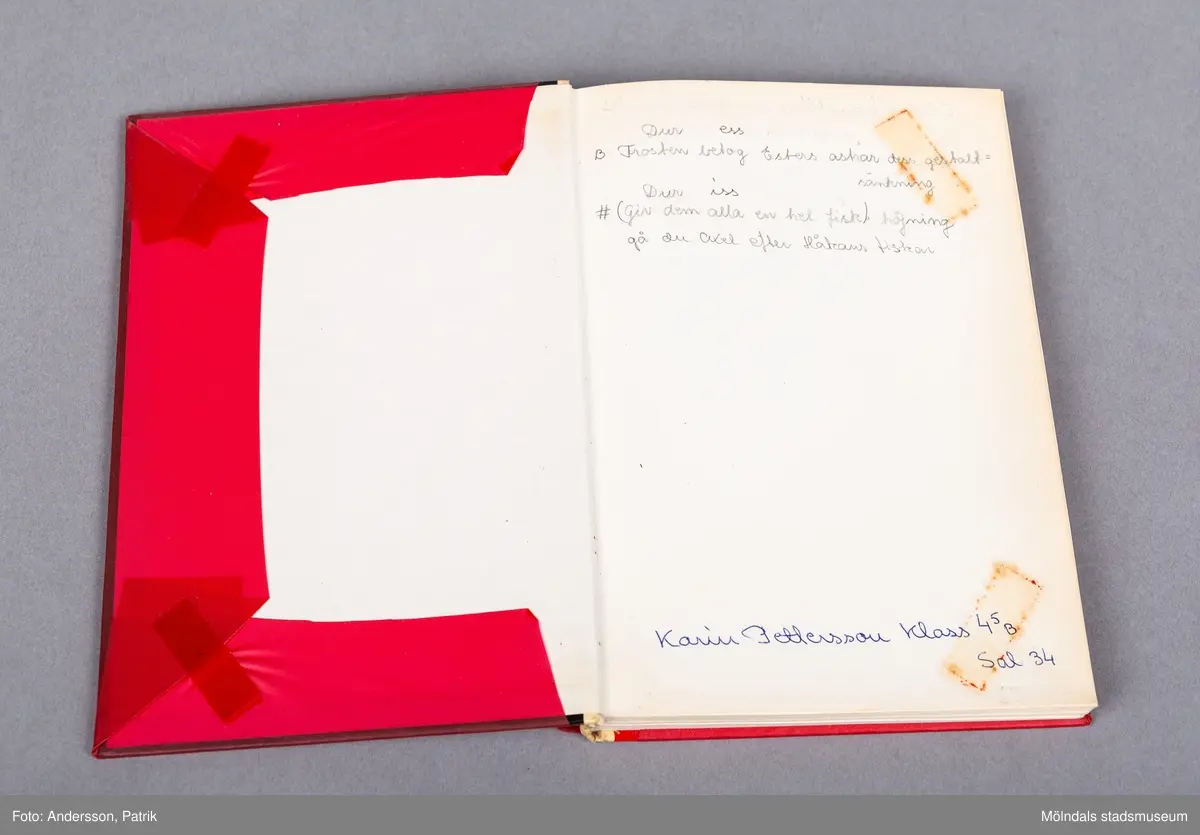 Dur ess
B Frosten betog Esters askar dess gestalt=
sänkning
Dur iss
# (Giv dem alla en hel fisk) höjning
gå du Axel efter Håkans fiskar
Karin Pettersson Klass 4⁵B
Sal 34
Foto: Andersson, Patrik
Mölndals stadsmuseum